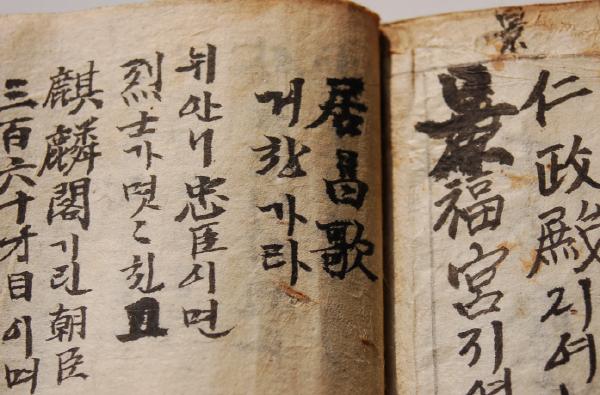 仁政殿지여
景
景福宮지여
居昌歌
거창가라
뉘아니忠臣이면
烈士가몃〻친
麒麟閣기린朝臣
三百六十才目이며